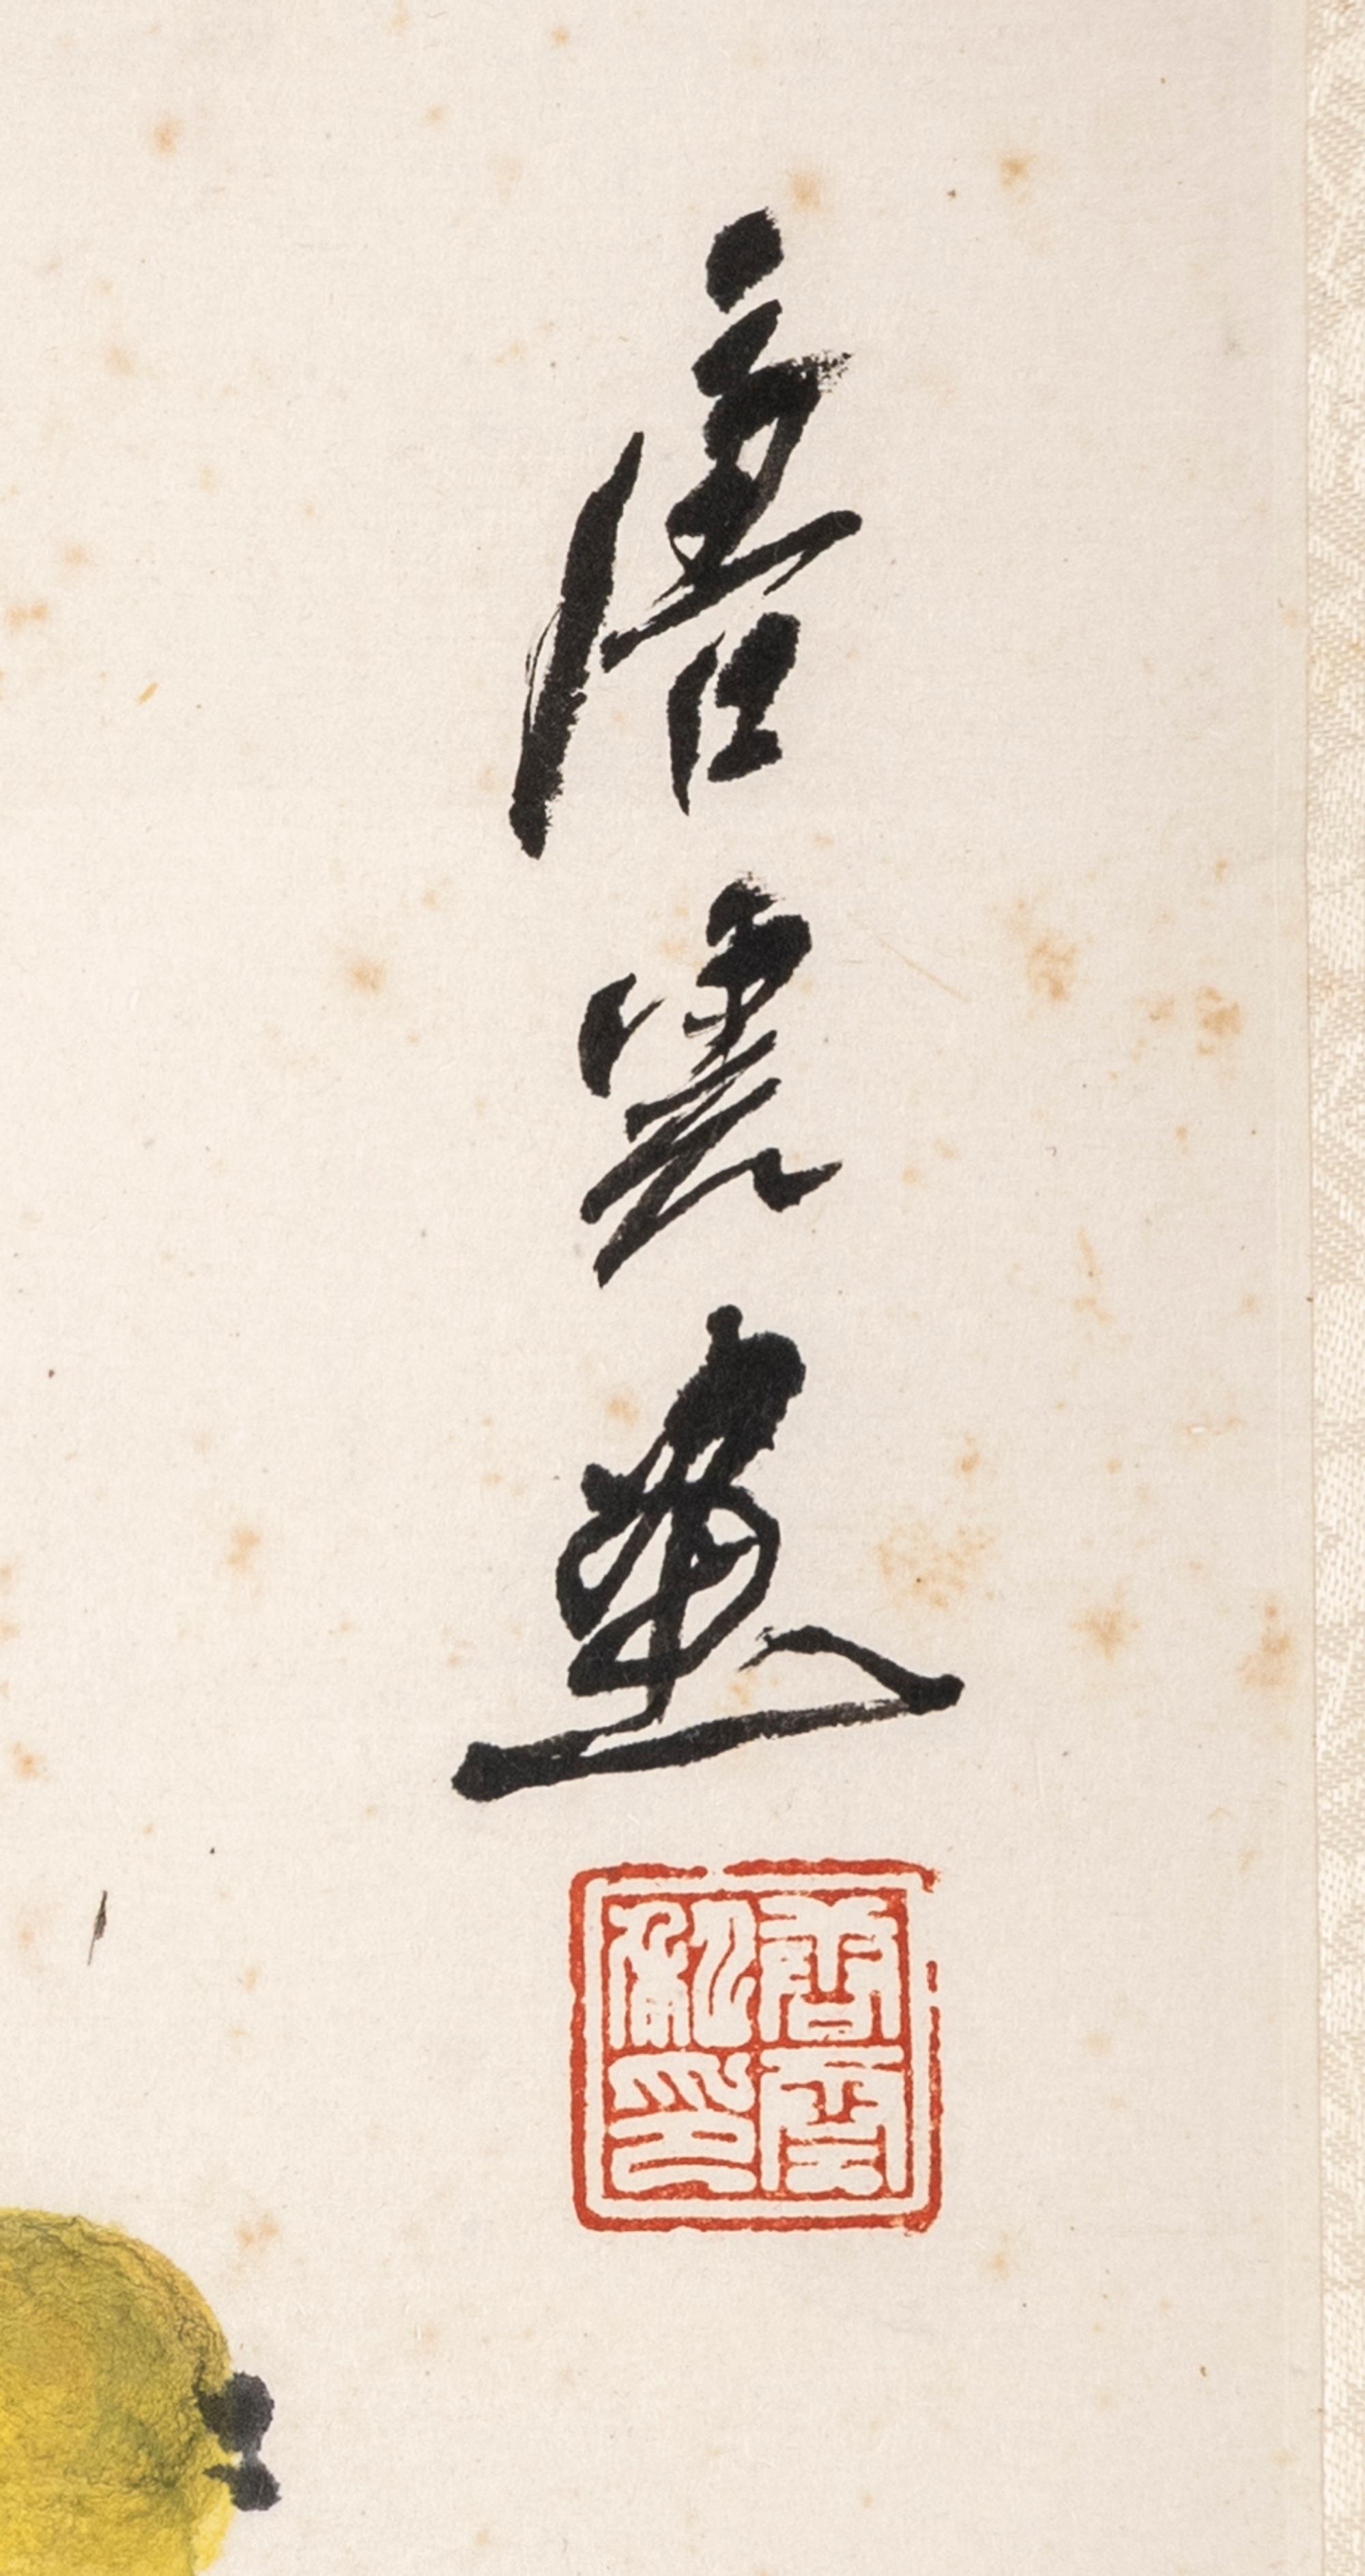 唐雲畫
唐雲
印